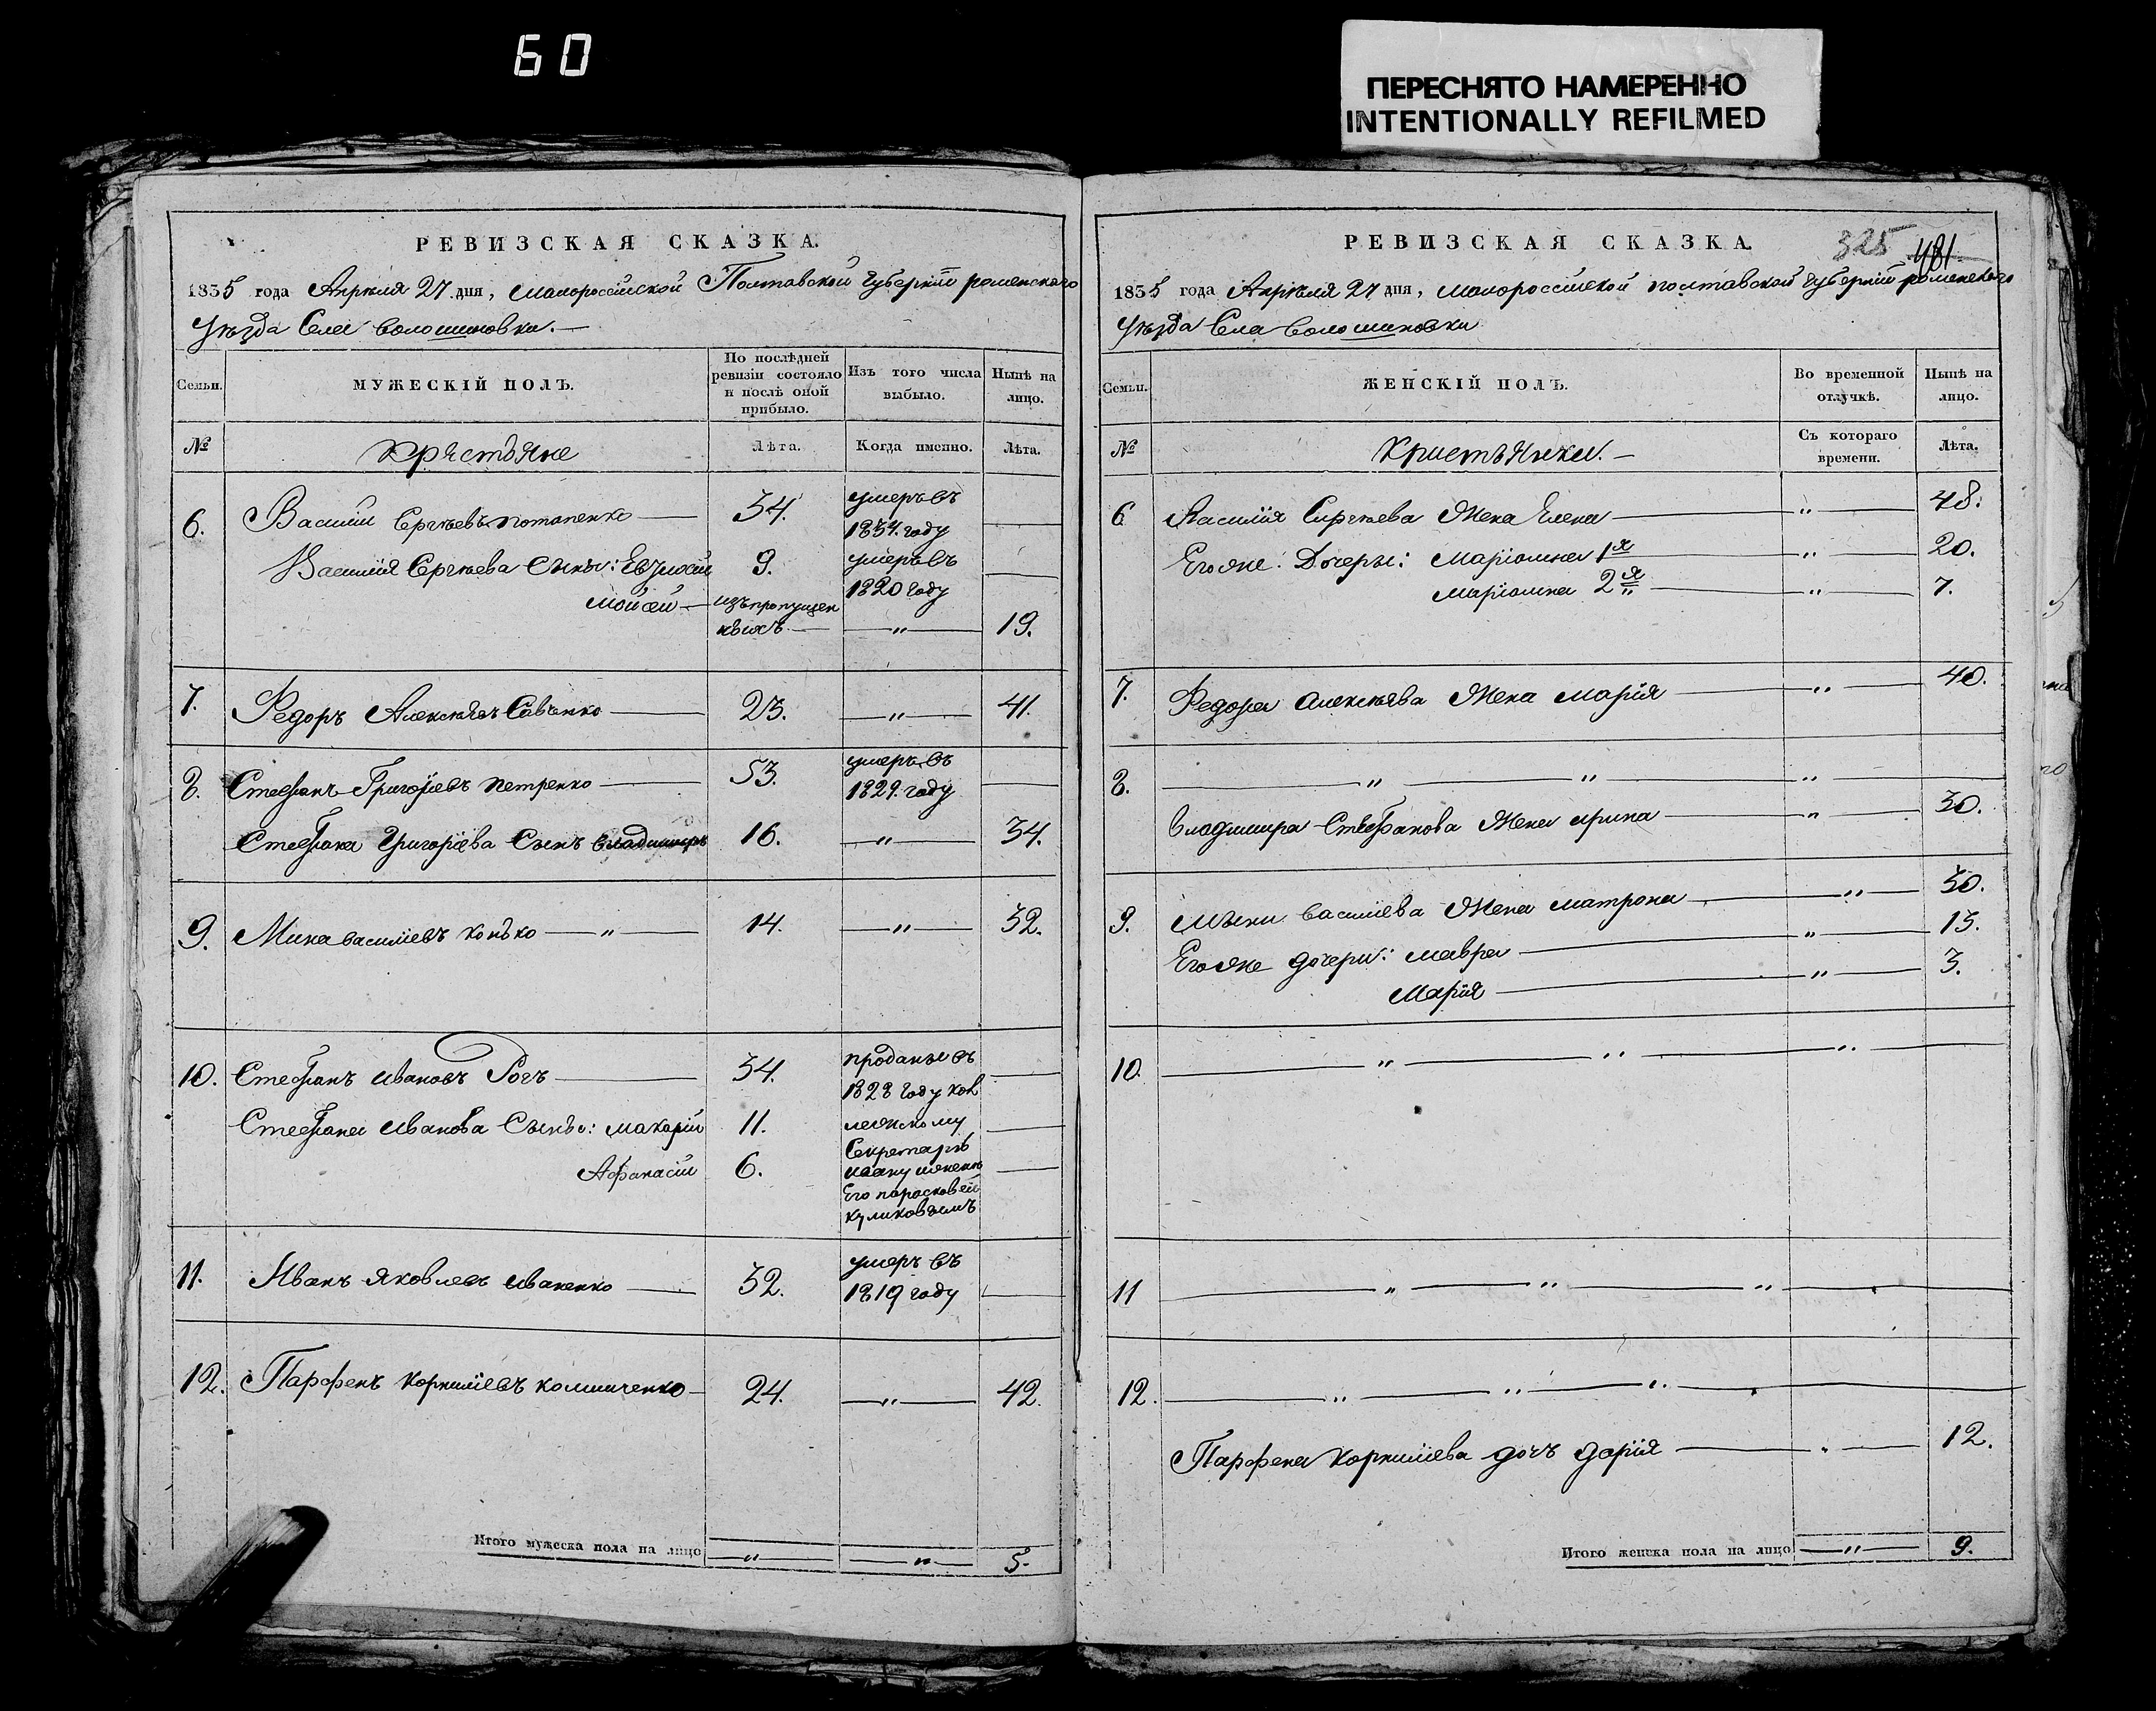 60
ПЕРЕСНЯТО НАМЕРЕННО
INTENTIONALLY REFILMED
РЕВИЗСКАЯ СКАЗКА.
1835 года Апреля 27 дня, Малороссійской Полтавской Губерніи роменскаго
Уезда Села Волошиновки.
Семьи.
МУЖЕСКІЙ ПОЛЪ.
По послѣдней ревизіи состояло и послѣ оной прибыло.
Изъ того числа выбыло.
Нынѣ на лицо.
№
Крестьяне
Лѣта.
Когда именно.
Лѣта.
6. Василій Сергѣевъ потапенко 34. умеръ въ 1834. году
Василія Сергѣева Сынъ: Евдокій 9. умеръ въ 1820 году
мойсей изъ пропущенныхъ " 19.
7. Федоръ Алексѣевъ Савенко 23. " 41.
8. Стефанъ Григорїевъ петренко 53. умеръ въ 1829. году
Стефана Григорїева Сынъ владимиръ 16. " 34.
9. Мина василіевъ конько " 14. " 32.
10. Стефанъ ивановъ Рогъ 34. проданы въ 1828 году
Стефана иванова Сынъ: макарій 11.
Афанасій 6.
Секретарю ивану и женѣ
Его парасковеи куликовымъ
11. Иванъ яковлевъ иваненко 32. умеръ въ 1819 году
12. Парфенъ корниліевъ коломиченко 24. " 42.
Итого мужеска пола на лицо " " 5.
РЕВИЗСКАЯ СКАЗКА.
325 481
1835 года Апрѣля 27 дня, малороссійской полтавской губерніи роменскаго
Уѣзда Села волошиновки
Семьи.
ЖЕНСКІЙ ПОЛЪ.
Во временной отлучкѣ.
Нынѣ на лицо.
№
Кристьянки.
Съ котораго времени.
Лѣта.
6 Василія Сиргѣева Жена Елена " 48.
Егоже: Дочеры: Маріамна 1я " 20.
маріамна 2я " 7.
7. Федора алексѣева Жена марія " 40.
8. " " "
владимира Стефанова Жена ирина " 30.
9. Мыны василіева Жена матрона " 30.
Егоже дочери: мавра " 13.
Марія " 3.
10. " " "
11 " " "
12. " " "
Парфена корниліева дочъ дарія " 12.
Итого женска пола на лицо " 9.